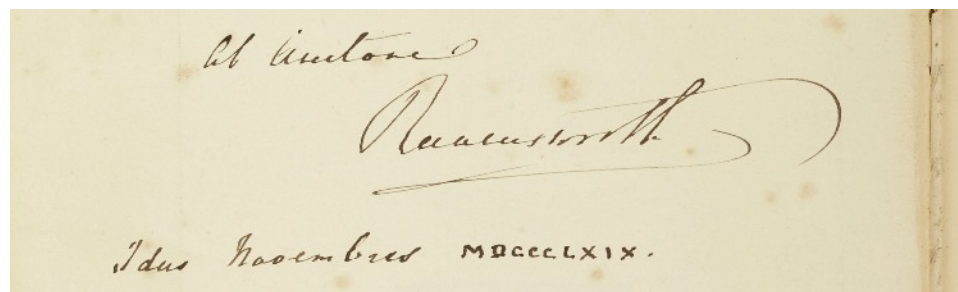 Ab Auctore
Ravensworth
Idus Novembres MDCCCLXIX.